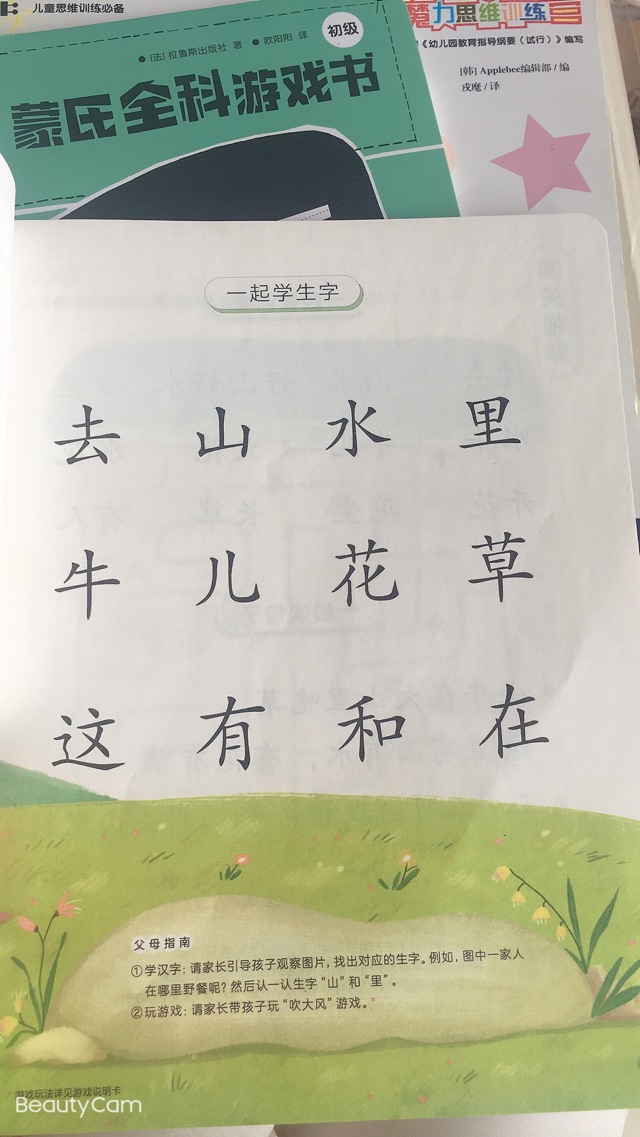 儿童思维训练必备
魔力思维训练
《幼儿园教育指导纲要（试行）》编写
[韩] Applebee编辑部 / 编
戎麾 / 译
初级
• [法] 拉鲁斯出版社 著 • 欧阳阳 译
蒙氏全科游戏书
一起学生字
去 山 水 里
牛 儿 花 草
这 有 和 在
父母指南
①学汉字：请家长引导孩子观察图片，找出对应的生字。例如，图中一家人
在哪里野餐呢？然后认一认生字“山”和“里”。
②玩游戏：请家长带孩子玩“吹大风”游戏。*
*游戏玩法详见游戏说明卡
BeautyCam